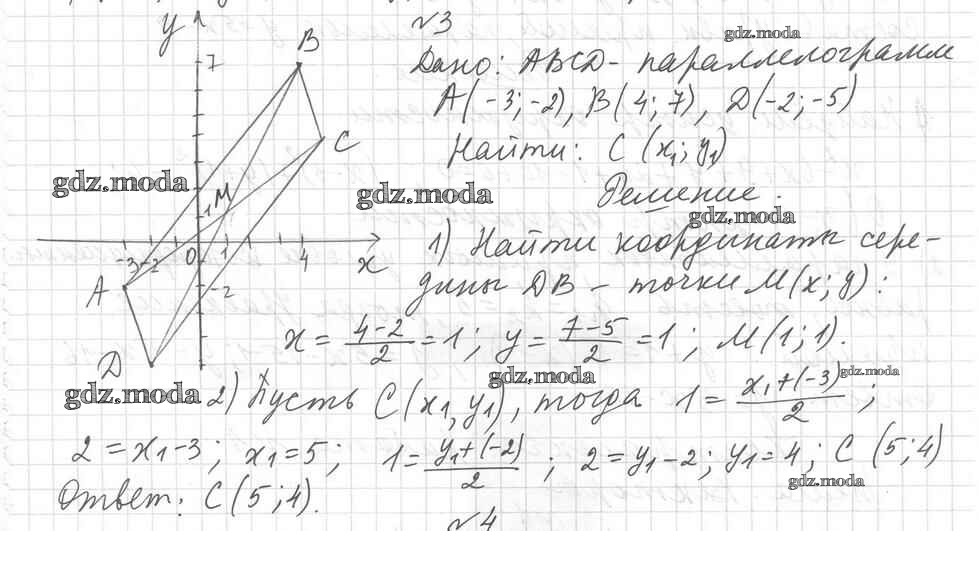 №3
gdz.moda
Дано: ABCD - параллелограмм
A(-3;-2), B(4;7), D(-2;-5)
Найти: C (x₁; y₁)
Решение.
gdz.moda
gdz.moda
gdz.moda
1) Найти координаты сере-
дины DB - точки M(x; y):
x = (4-2)/2 = 1; y = (7-5)/2 = 1; M(1; 1).
gdz.moda
gdz.moda
gdz.moda
2) Пусть C(x₁, y₁), тогда 1 = (x₁+(-3))/2;
2 = x₁-3; x₁=5; 1 = (y₁+(-2))/2; 2 = y₁-2; y₁=4; C (5;4)
gdz.moda
Ответ: C(5;4).
№4
y
B
7
C
M
1
-3 -2 0 1 4 x
A
-2
D